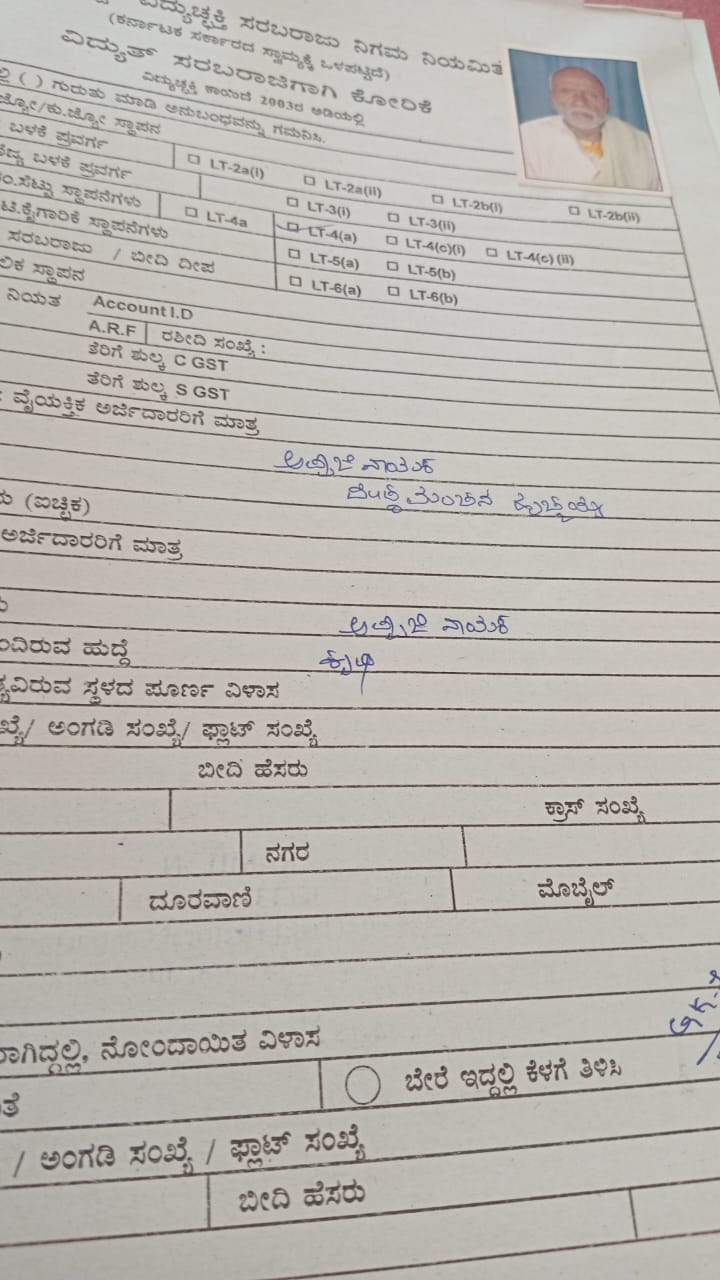 ವಿದ್ಯುಚ್ಛಕ್ತಿ ಸರಬರಾಜು ನಿಗಮ ನಿಯಮಿತ
(ಕರ್ನಾಟಕ ಸರ್ಕಾರದ ಸ್ವಾಮ್ಯಕ್ಕೆ ಒಳಪಟ್ಟಿದೆ)
ವಿದ್ಯುತ್ ಸರಬರಾಜಿಗಾಗಿ ಕೋರಿಕೆ
ವಿದ್ಯುಚ್ಛಕ್ತಿ ಕಾಯಿದೆ 2003ರ ಅಡಿಯಲ್ಲಿ
( ) ಗುರುತು ಮಾಡಿ ಅನುಬಂಧವನ್ನು ಗಮನಿಸಿ.
ಸ್ಥಾಪನ
ಬಳಕೆ ಪ್ರವರ್ಗ LT-2a(i) LT-2a(ii) LT-2b(i) LT-2b(ii)
ಬಳಕೆ ಪ್ರವರ್ಗ LT-3(i) LT-3(ii)
ಸ್ಥಾಪನೆಗಳು LT-4a LT-4(a) LT-4(c)(i) LT-4(c)(ii)
ಸ್ಥಾಪನೆಗಳು LT-5(a) LT-5(b)
ಸರಬರಾಜು / ಬೀದಿ ದೀಪ LT-6(a) LT-6(b)
ಸ್ಥಾಪನ
ನಿಯತ Account I.D
A.R.F ರಶೀದಿ ಸಂಖ್ಯೆ :
ತೆರಿಗೆ ಶುಲ್ಕ C GST
ತೆರಿಗೆ ಶುಲ್ಕ S GST
ವೈಯಕ್ತಿಕ ಅರ್ಜಿದಾರರಿಗೆ ಮಾತ್ರ
ನಾಯಕ
(ಐಚ್ಛಿಕ)
ಅರ್ಜಿದಾರರಿಗೆ ಮಾತ್ರ
ನಾಯಕ
ಹುದ್ದೆ ಕೃಷಿ
ಸ್ಥಳದ ಪೂರ್ಣ ವಿಳಾಸ
/ ಅಂಗಡಿ ಸಂಖ್ಯೆ/ ಫ್ಲಾಟ್ ಸಂಖ್ಯೆ
ಬೀದಿ ಹೆಸರು
ಕ್ರಾಸ್ ಸಂಖ್ಯೆ
ನಗರ
ದೂರವಾಣಿ ಮೊಬೈಲ್
ನೋಂದಾಯಿತ ವಿಳಾಸ
ಬೇರೆ ಇದ್ದಲ್ಲಿ ಕೆಳಗೆ ತಿಳಿಸಿ
/ ಅಂಗಡಿ ಸಂಖ್ಯೆ / ಫ್ಲಾಟ್ ಸಂಖ್ಯೆ
ಬೀದಿ ಹೆಸರು